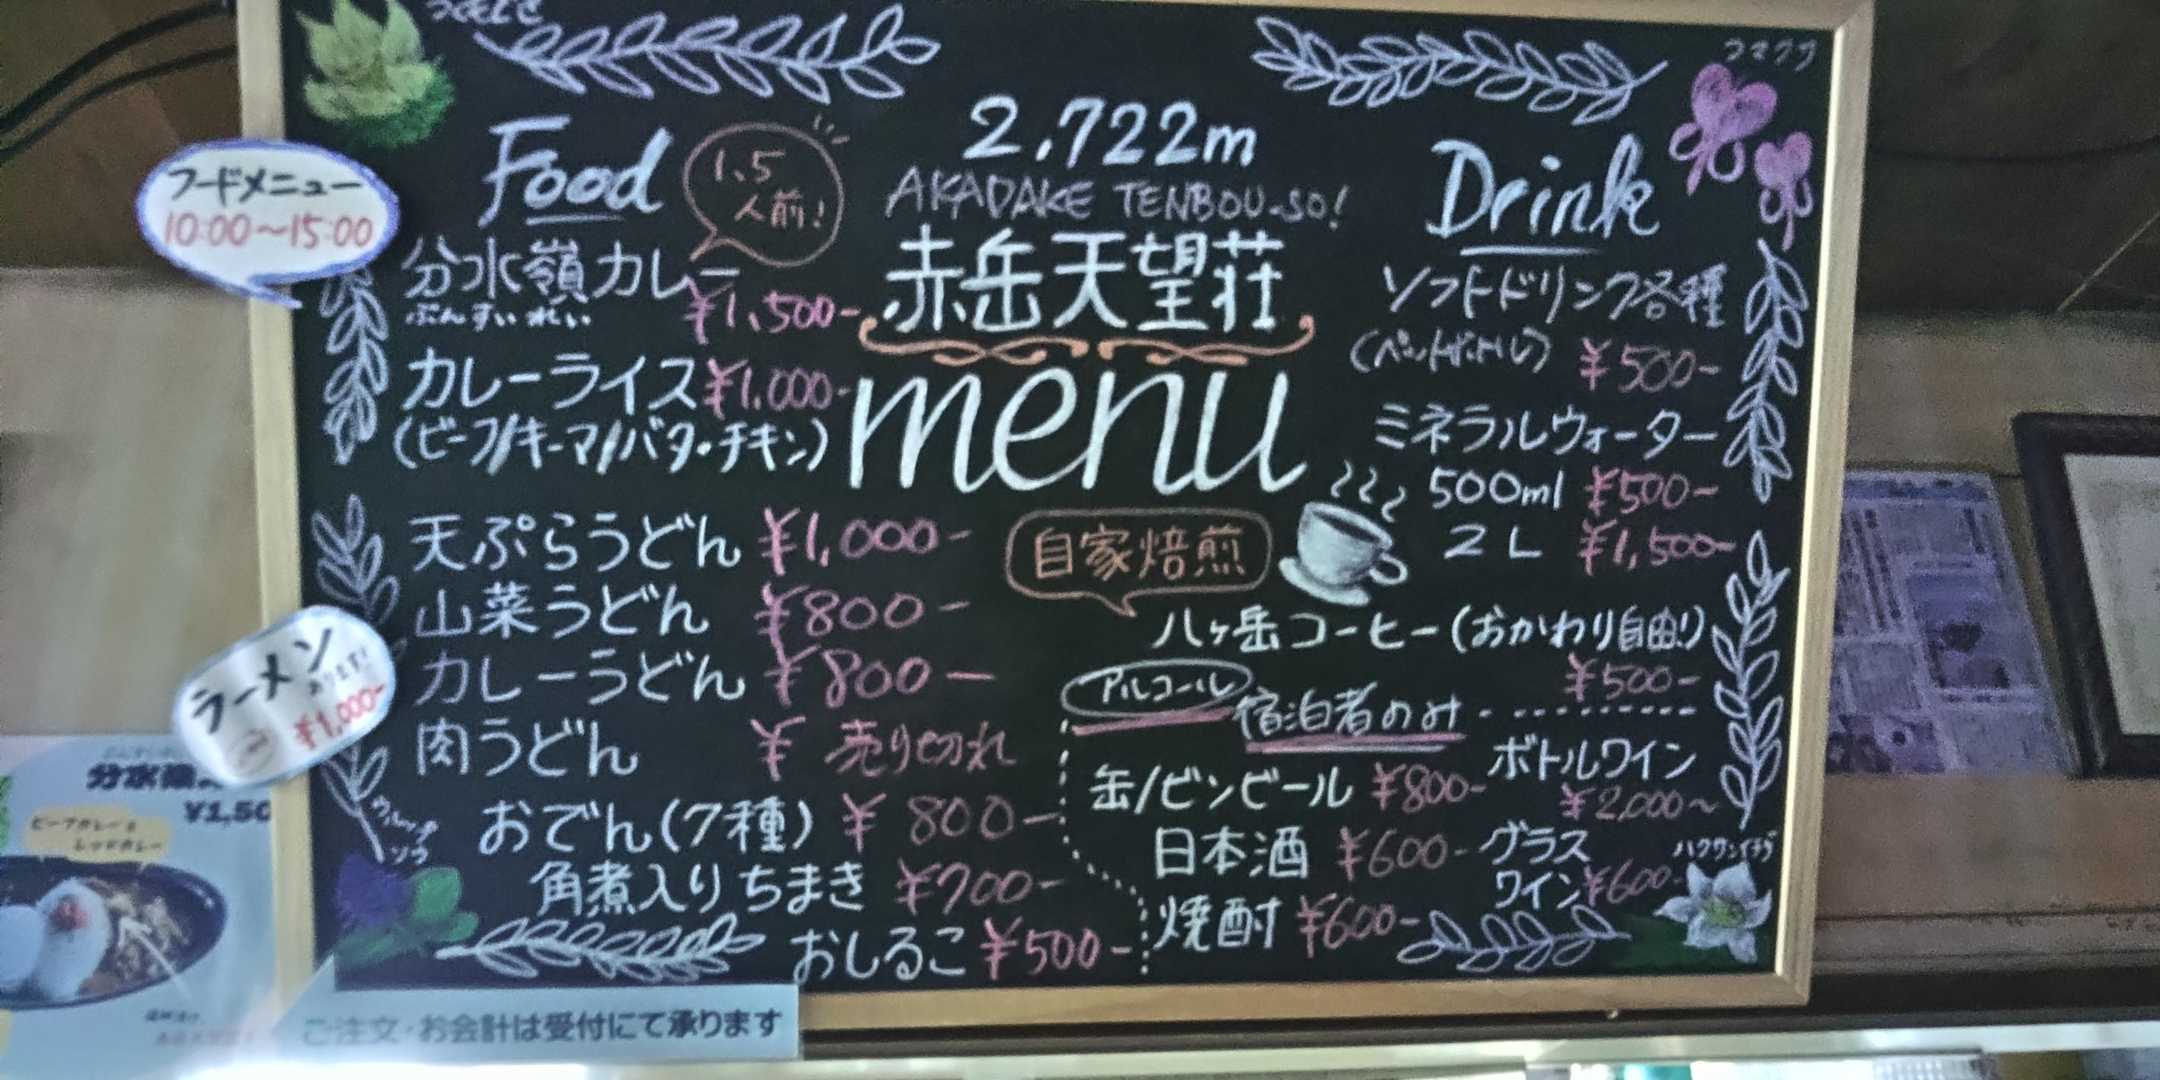 フードメニュー
10:00〜15:00
Food
1.5
人前!
分水嶺カレー
ぶんすいれい
¥1,500-
カレーライス ¥1,000-
(ビーフ/キーマ/バター・チキン)
天ぷらうどん ¥1,000-
山菜うどん ¥800-
カレーうどん ¥800-
肉うどん ¥ 売り切れ
ラーメン
あります!
¥1,000-
おでん(7種) ¥800-
角煮入りちまき ¥700-
おしるこ ¥500-
2,722m
AKADAKE TENBOU-SO!
赤岳天望荘
menu
コマクサ
Drink
ソフトドリンク各種
(ペットボトル) ¥500-
ミネラルウォーター
500ml ¥500-
2L ¥1,500-
自家焙煎
八ヶ岳コーヒー(おかわり自由!)
¥500-
アルコール
宿泊者のみ
缶/ビンビール ¥800-
日本酒 ¥600-
焼酎 ¥600-
ボトルワイン
¥2,000〜
グラス
ワイン ¥600-
ハクサンイチゲ
ご注文・お会計は受付にて承ります
分水嶺
¥1,50
ビーフカレーと
レッドカレー